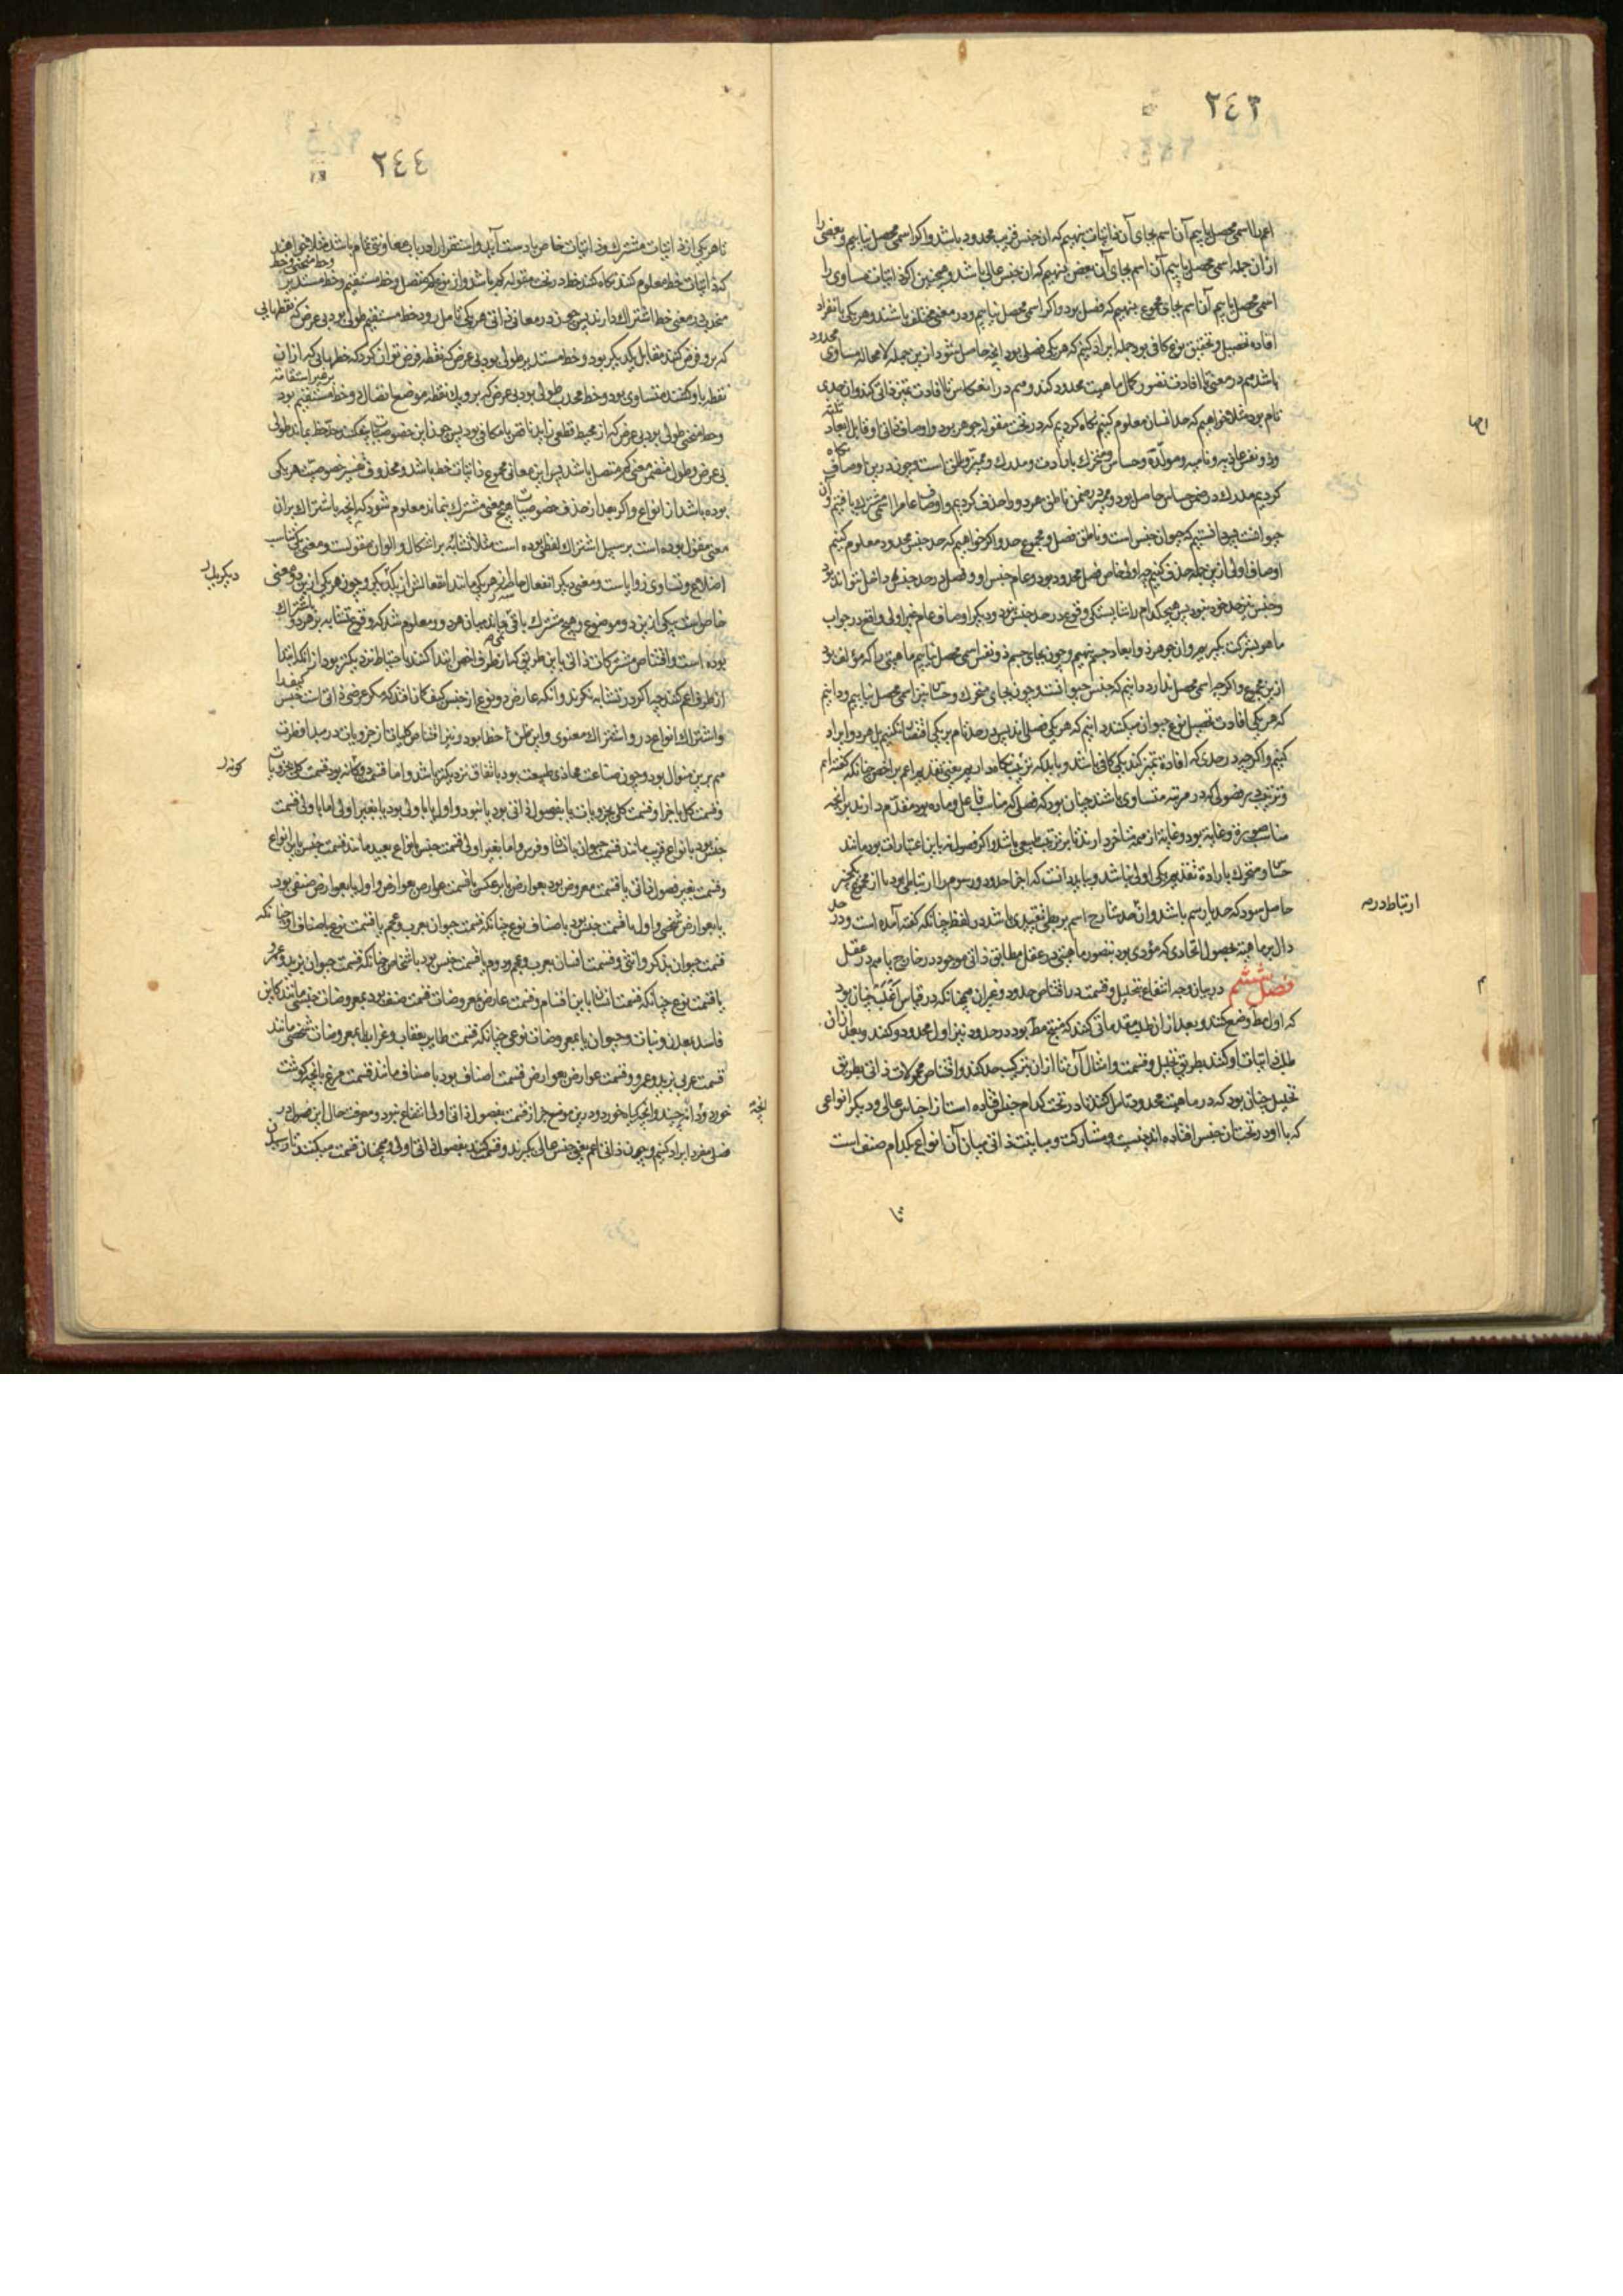 ٢٤٣
اعم را اسمی محصل یابیم آن اسم بجای آن ذاتیات بنهیم که آن جنس قریب محدود باشد و اگر اسمی محصل نیابیم و بعضی را
از آن جمله اسمی محصل یابیم آن اسم بجای آن بعض بنهیم که آن جنس عالی باشد و همچنین اگر ذاتیات مساوی را
اسمی محصل یابیم آن اسم بجای مجموع بنهیم که فصل بود و اگر اسمی محصل نیابیم و در معنی مختلف باشند و هر یکی بانفراد
افاده تحصیل و تحقیق نوع کافی بود جمله ایراد کنیم که هر یکی فصلی بود آنچه حاصل شود ازین جمله لا محاله مساوی محدود
باشد هم در معنی تا افادت تصور کمال ماهیت محدود کند و هم در انعکاس تا افادت تمیز ذاتی کند و آن حدی
تام بود مثلا خواهیم که حد انسان معلوم کنیم نگاه کردیم که در تحت مقوله جوهر بود و اوصاف ذاتی او قابل ابعاد ثلثه
و ذو نفس غاذیه و نامیه و مولده و حساس و متحرک بارادت و مدرک و ممیز و ناطق است و چون درین اوصاف نگاه
کردیم مدرک در ضمن حساس حاصل بود و ممیز در ضمن ناطق هر دو را حذف کردیم و اوصاف عام را اسمی مشترک یافتیم و آن
حیوانست پس دانستیم که حیوان جنس است و ناطق فصل و مجموع حد و اگر خواهیم که حد جنس محدود معلوم کنیم
اوصاف اولی ازین جمله حذف کنیم چه اولی خاص فصل محدود بود و عام جنس او و فصل در حد جنس داخل نتواند بود
و جنس نیز حد خود نبود پس هیچکدام را شایستگی وقوع در حد جنس نبود و دیگر اوصاف عام غیر اولی واقع در جواب
ما هو بشرکت بگیریم و آن جوهر ذو ابعاد جسم بنهیم و چون بجای جسم ذو نفس اسمی محصل نیابیم ماهیتی را که مؤلف بود
ازین مجموع و اگر چه اسمی محصل ندارد دانیم که جنس حیوانست و چون بجای متحرک و حساس نیز اسمی محصل نیابیم و دانیم
که هر یکی افادت تحصیل نوع حیوان میکنند دانیم که هر یکی فصلی اند پس در حد تام بر یکی اقتصار نکنیم بل هر دو ایراد
کنیم و اگر چه در حدی که افاده تمیز کند یکی کافی باشد و باید که ترتیب نگاه داریم یعنی تقدیم اعم بر اخص چنانکه گفته ایم
و ترتیب در فصولی که در مرتبه متساوی باشند چنان بود که فصلی که مناسب فاعل و ماده بود مقدم دارند بر آنچه
مناسب صورة و غایة بود و غایة از همه متاخر دارند تا بر ترتیب طبیعی باشد و اگر فصول نه باین اعتبارات بود مانند
حساس و متحرک بارادة تقدیم یکی اولی نباشد و بباید دانست که اجزاء حدود و رسوم را ارتباطی بود تا از مجموع یک چیز
حاصل شود که حد یا رسم باشد و آن حد شارح اسم بربطی تقییدی باشد در لفظ چنانکه گفته آمده است و در حد
دال بر ماهیة بحصول اتحادی که مؤدی بود بتصور ماهیتی در عقل مطابق ذاتی موجود در خارج یا هم در عقل
فصل ششم در بیان وجه انتفاع بتحلیل و قسمت در اقتناص حدود و غیر آن همچنانکه در قیاس اغلب چنان بود
که اول مط وضع کنند و بعد از آن طلب مقدماتی کنند که منتج مط بود در حدود نیز اول محدود وضع کنند و بعد از آن
طلب ذاتیات او کنند بطریق تحلیل و قسمت و امثال آن تا از آن ترکیب حد کنند و اقتناص محمولات ذاتی بطریق
تحلیل چنان بود که در ماهیت محدود تامل کنند تا در تحت کدام جنس افتاده است از اجناس عالی و دیگر انواعی
که با او در تحت آن جنس افتاده اند چیست و مشارکت و مباینت ذاتی میان آن انواع بکدام صنف است
ارتباط در مه
م
تا
٢٤٤
تا هر یکی از ذاتیات مشترک و ذاتیات خاص بدست آید و استقرا را درین باب معاونتی تمام باشد مثلا خواهند
که ذاتیات خط معلوم کنند نگاه کنند خط در تحت مقوله کم باشد و از نوع کم متصل و خط مستقیم و خط مستدیر و خط منحنی و خط
محدب در معنی خط اشتراک دارند پس چون در معانی ذاتی هر یکی تامل رود خط مستقیم طولی بود بی عرض که نقطهایی
که برو فرض کنند مقابل یکدیگر بود و خط مستدیر طولی بود بی عرض که نقطه فرض توان کرد که خطهایی که از آن
نقطه باو کشند متساوی بود و خط محدب طولی بود بی عرض که برو یک نقطه موضع اتصال دو خط مستقیم بود بر غیر استقامة
و خط منحنی طولی بود بی عرض که از محیط قطعی زاید یا ناقص یا مکافی بود پس چون این خصوصیات بیفکنند حد خط بماند طولی
بی عرض و طول متضمن معنی کم متصل باشد پس این معانی مجموع ذاتیات خط باشد و محذوف تفسیر خصوصیت هر یکی
بوده باشد از انواع و اگر بعد از حذف خصوصیات هیچ معنی مشترک بنماند معلوم شود که آنچه باشتراک بر آن
معنی مقول بوده است بر سبیل اشتراک لفظی بوده است مثلا تشابه بر اشکال و الوان مقولست و معنی یکی تناسب
اضلاع و تساوی زوایاست و معنی دیگر انفعال حاسه از هر یکی مانند انفعالش از یکدیگر و چون هر یکی ازین دو معنی
خاص است بیکی ازین دو موضوع و هیچ مشترک باقی نماند میان هر دو و معلوم شد که وقوع تشابه بر هر دو باشتراک
بوده است و اقتناص مشترکات ذاتی باین طریق که از طرف اخص ابتدا کنند باحتیاط نزدیکتر بود از آنکه ابتدا
از طرف اعم کنند چه اگر در تشابه نگرند و آنکه عارض دو نوع از جنس کیف گمان افتد که مگر عرضی ذاتی است جنس کیف را
و اشتراک انواع در و اشتراک معنوی و این ظن خطا بود و نیز اقتناص کلیات از جزویات در مبدا فطرت
هم برین منوال بود و چون صناعت محاذی طبیعت بود باتفاق نزدیکتر باشد و اما قسمت دو گانه بود قسمت کلی بجزویات
و قسمت کل باجزا و قسمت کلی بجزویات یا بفصول ذاتی بود یا نبود و اول یا باولی بود یا بغیر اولی اما باولی قسمت
جنس بود بانواع قریب مانند قسمت حیوان بانسان و فرس و اما بغیر اولی قسمت جنس بانواع بعید مانند قسمت جنس باین انواع
و قسمت بغیر فصول ذاتی یا قسمت معروض بود بعوارض یا بر عکس یا قسمت عوارض بعوارض و اول یا بعوارض صنفی بود
یا بعوارض شخصی و اول یا قسمت جنس بود باصناف نوع چنانکه قسمت حیوان بعرب و عجم یا قسمت نوع باصناف او چنانکه
قسمت حیوان بذکر و انثی و قسمت انسان بعرب و عجم و دوم یا قسمت جنس بود باشخاص چنانکه قسمت حیوان بزید و عمرو
یا قسمت نوع چنانکه قسمت انسان باین اقسام و قسمت عارض بمعروضات قسمت صنف بود بمعروضات جنسی مانند کاین
فاسد بمعدن و نبات و حیوان یا بمعروضات نوعی چنانکه قسمت طایر بعقاب و غراب یا بمعروضات شخصی مانند
قسمت عربی بزید و عمرو و قسمت عوارض بعوارض قسمت اصناف بود باصناف مانند قسمت مرغ بآنچه گوشت
خورد و دانه چیند و آنچه گیاه خورد و درین موضع جز از قسمت بفصول ذاتی اولی انتفاع نبود و معرفت حال این فصول در
فصل مفرد ایراد کنیم و چون ذاتی اعم یعنی جنس عالی بگیرند و قسمت کنند بفصول ذاتی اولی و همچنان قسمت میکنند تا رسیدن